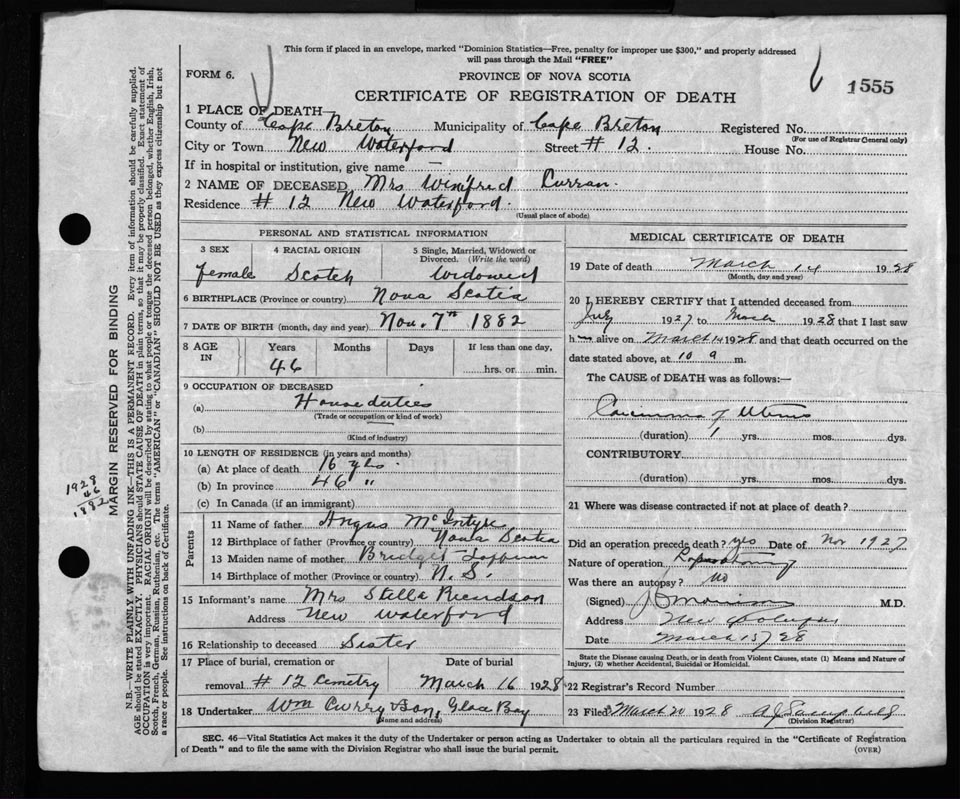 This form if placed in an envelope, marked "Dominion Statistics—Free, penalty for improper use $300," and properly addressed
will pass through the Mail "FREE"
FORM 6.
PROVINCE OF NOVA SCOTIA
1555
CERTIFICATE OF REGISTRATION OF DEATH
1 PLACE OF DEATH—
County of Cape Breton Municipality of Cape Breton Registered No.
(For use of Registrar General only)
City or Town New Waterford Street # 12. House No.
If in hospital or institution, give name —
2 NAME OF DECEASED Mrs Winifred Curran.
Residence # 12 New Waterford.
(Usual place of abode)
PERSONAL AND STATISTICAL INFORMATION
3 SEX
female
4 RACIAL ORIGIN
Scotch
5 Single, Married, Widowed or
Divorced. (Write the word)
Widowed
6 BIRTHPLACE (Province or country) Nova Scotia
7 DATE OF BIRTH (month, day and year) Nov. 7th 1882
8 AGE
IN
Years
46
Months
Days
If less than one day,
hrs. or min.
9 OCCUPATION OF DECEASED
(a) House duties
(Trade or occupation or kind of work)
(b)
(Kind of industry)
10 LENGTH OF RESIDENCE (in years and months)
(a) At place of death 16 yrs.
(b) In province 46 "
(c) In Canada (if an immigrant)
Parents
11 Name of father Angus McIntyre
12 Birthplace of father (Province or country) Nova Scotia
13 Maiden name of mother Bridget
14 Birthplace of mother (Province or country) N. S.
15 Informant's name Mrs Stella Ricardson
Address New Waterford
16 Relationship to deceased Sister
17 Place of burial, cremation or
removal # 12 Cemetry
Date of burial
March 16 1928
18 Undertaker Wm Curry & Son, Glace Bay
(Name and address)
MEDICAL CERTIFICATE OF DEATH
19 Date of death March 14 1928
(Month, day and year)
20 I HEREBY CERTIFY that I attended deceased from
July 1927 to March 1928 that I last saw
h alive on March 14 1928 and that death occurred on the
date stated above, at 10 a m.
The CAUSE of DEATH was as follows:—
Carcinoma of Uterus
(duration) 1 yrs. mos. dys.
CONTRIBUTORY
(duration) yrs. mos. dys.
21 Where was disease contracted if not at place of death?
Did an operation precede death? yes Date of Nov 1927
Nature of operation
Was there an autopsy? No
(Signed) M.D.
Address New
Date March 15/28
State the Disease causing Death, or in death from Violent Causes, state (1) Means and Nature of
Injury, (2) whether Accidental, Suicidal or Homicidal.
22 Registrar's Record Number
23 Filed March 20 1928 A J Campbell
(Division Registrar)
SEC. 46—Vital Statistics Act makes it the duty of the Undertaker or person acting as Undertaker to obtain all the particulars required in the "Certificate of Registration
of Death" and to file the same with the Division Registrar who shall issue the burial permit.
(OVER)
MARGIN RESERVED FOR BINDING
N.B.—WRITE PLAINLY WITH UNFADING INK—THIS IS A PERMANENT RECORD. Every item of information should be carefully supplied.
AGE should be stated EXACTLY. PHYSICIANS should STATE CAUSE OF DEATH in plain terms, so that it may be properly classified. Exact statement of
OCCUPATION is very important. RACIAL ORIGIN will be described by stating to what people or tongue the deceased person belonged, whether English, Irish,
Scotch, French, German, Russian, Ruthenian, etc. The terms "AMERICAN" or "CANADIAN" SHOULD NOT BE USED as they express citizenship but not
a race or people. See instructions on back of Certificate.
1928
46
1882